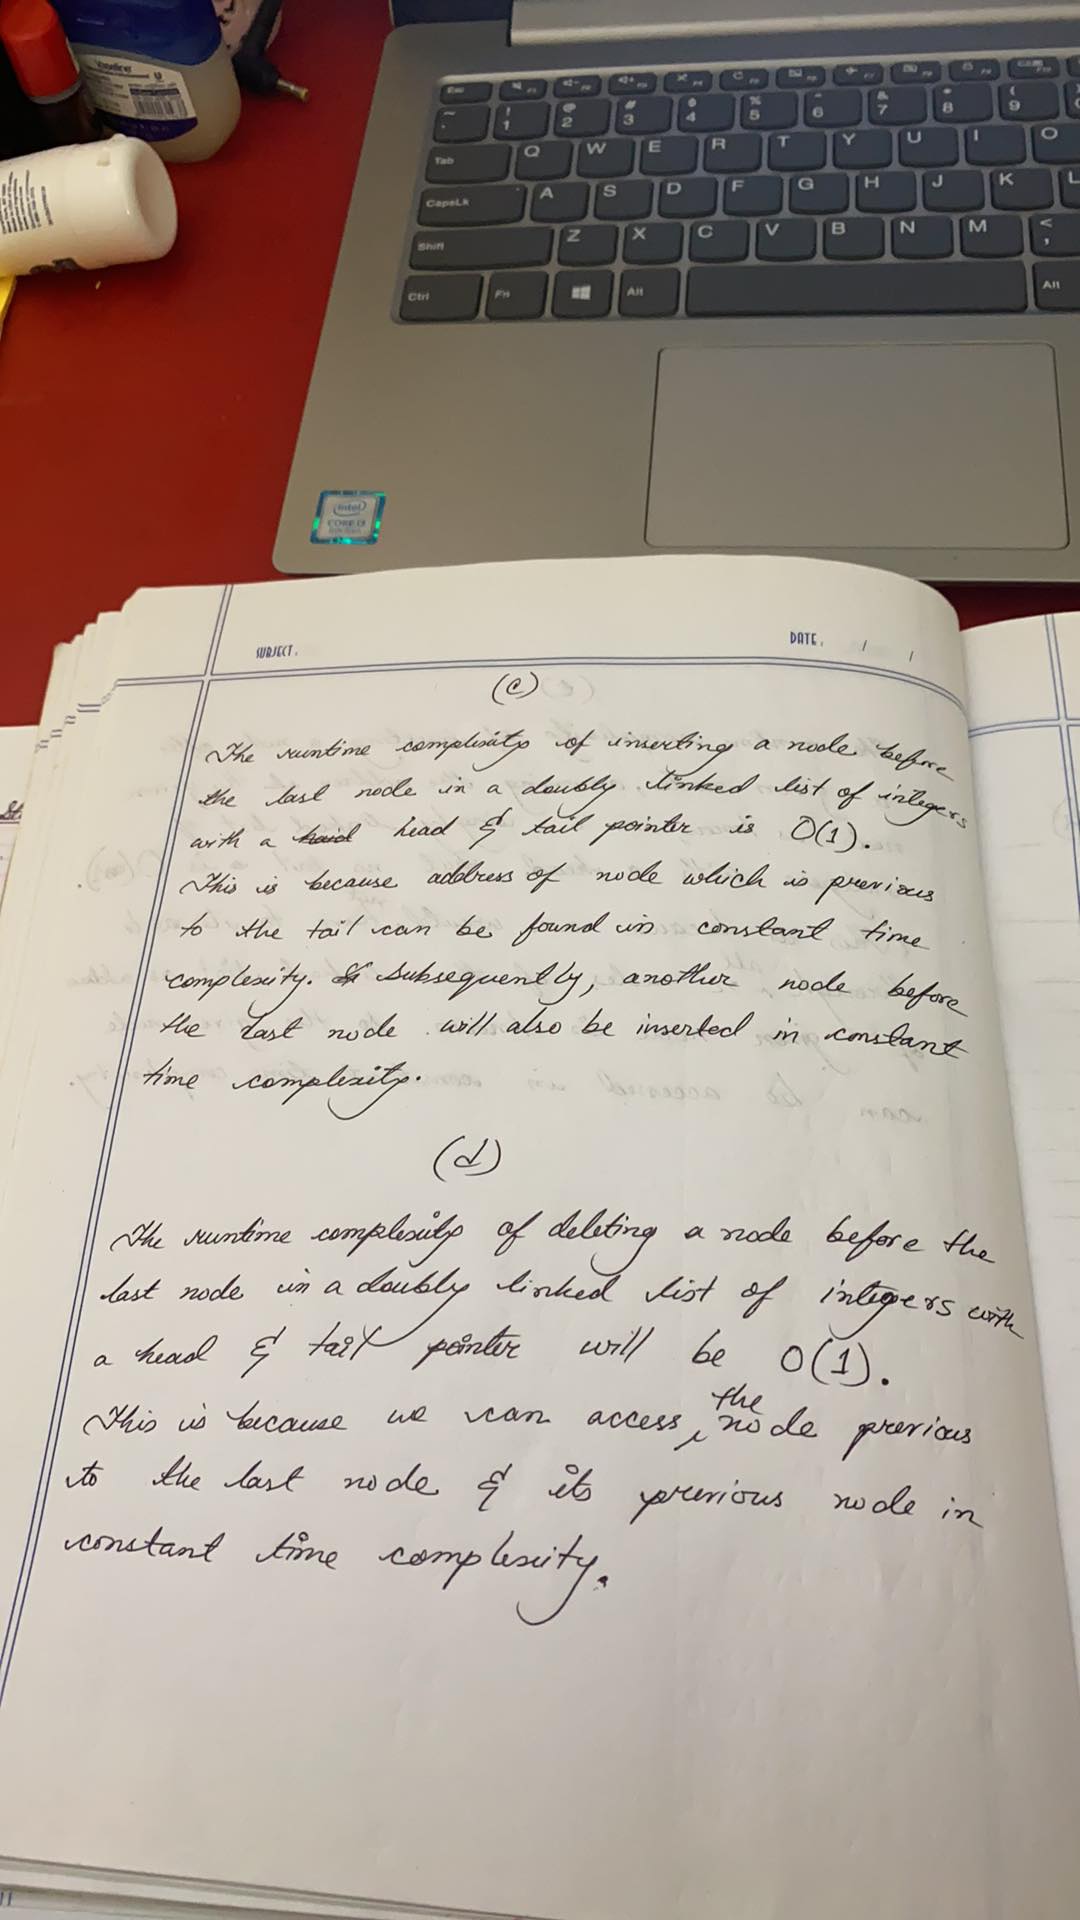 Vaseline
Esc F1 F2 F3 F4 F5 F6 F7 F8 F9
~ ! 1 @ 2 # 3 $ 4 % 5 ^ 6 & 7 * 8 ( 9
Tab Q W E R T Y U I O
CapsLk A S D F G H J K L
Shift Z X C V B N M < ,
Ctrl Fn Alt Alt
intel
CORE i3
SUBJECT.
DATE. / /
(c)
The runtime complexity of inserting a node before
the last node in a doubly linked list of integers
with a head & tail pointer is O(1).
This is because address of node which is previous
to the tail can be found in constant time
complexity. Subsequently, another node before
the last node will also be inserted in constant
time complexity.
(d)
The runtime complexity of deleting a node before the
last node in a doubly linked list of integers with
a head & tail pointer will be O(1).
This is because we can access the node previous
to the last node & its previous node in
constant time complexity.